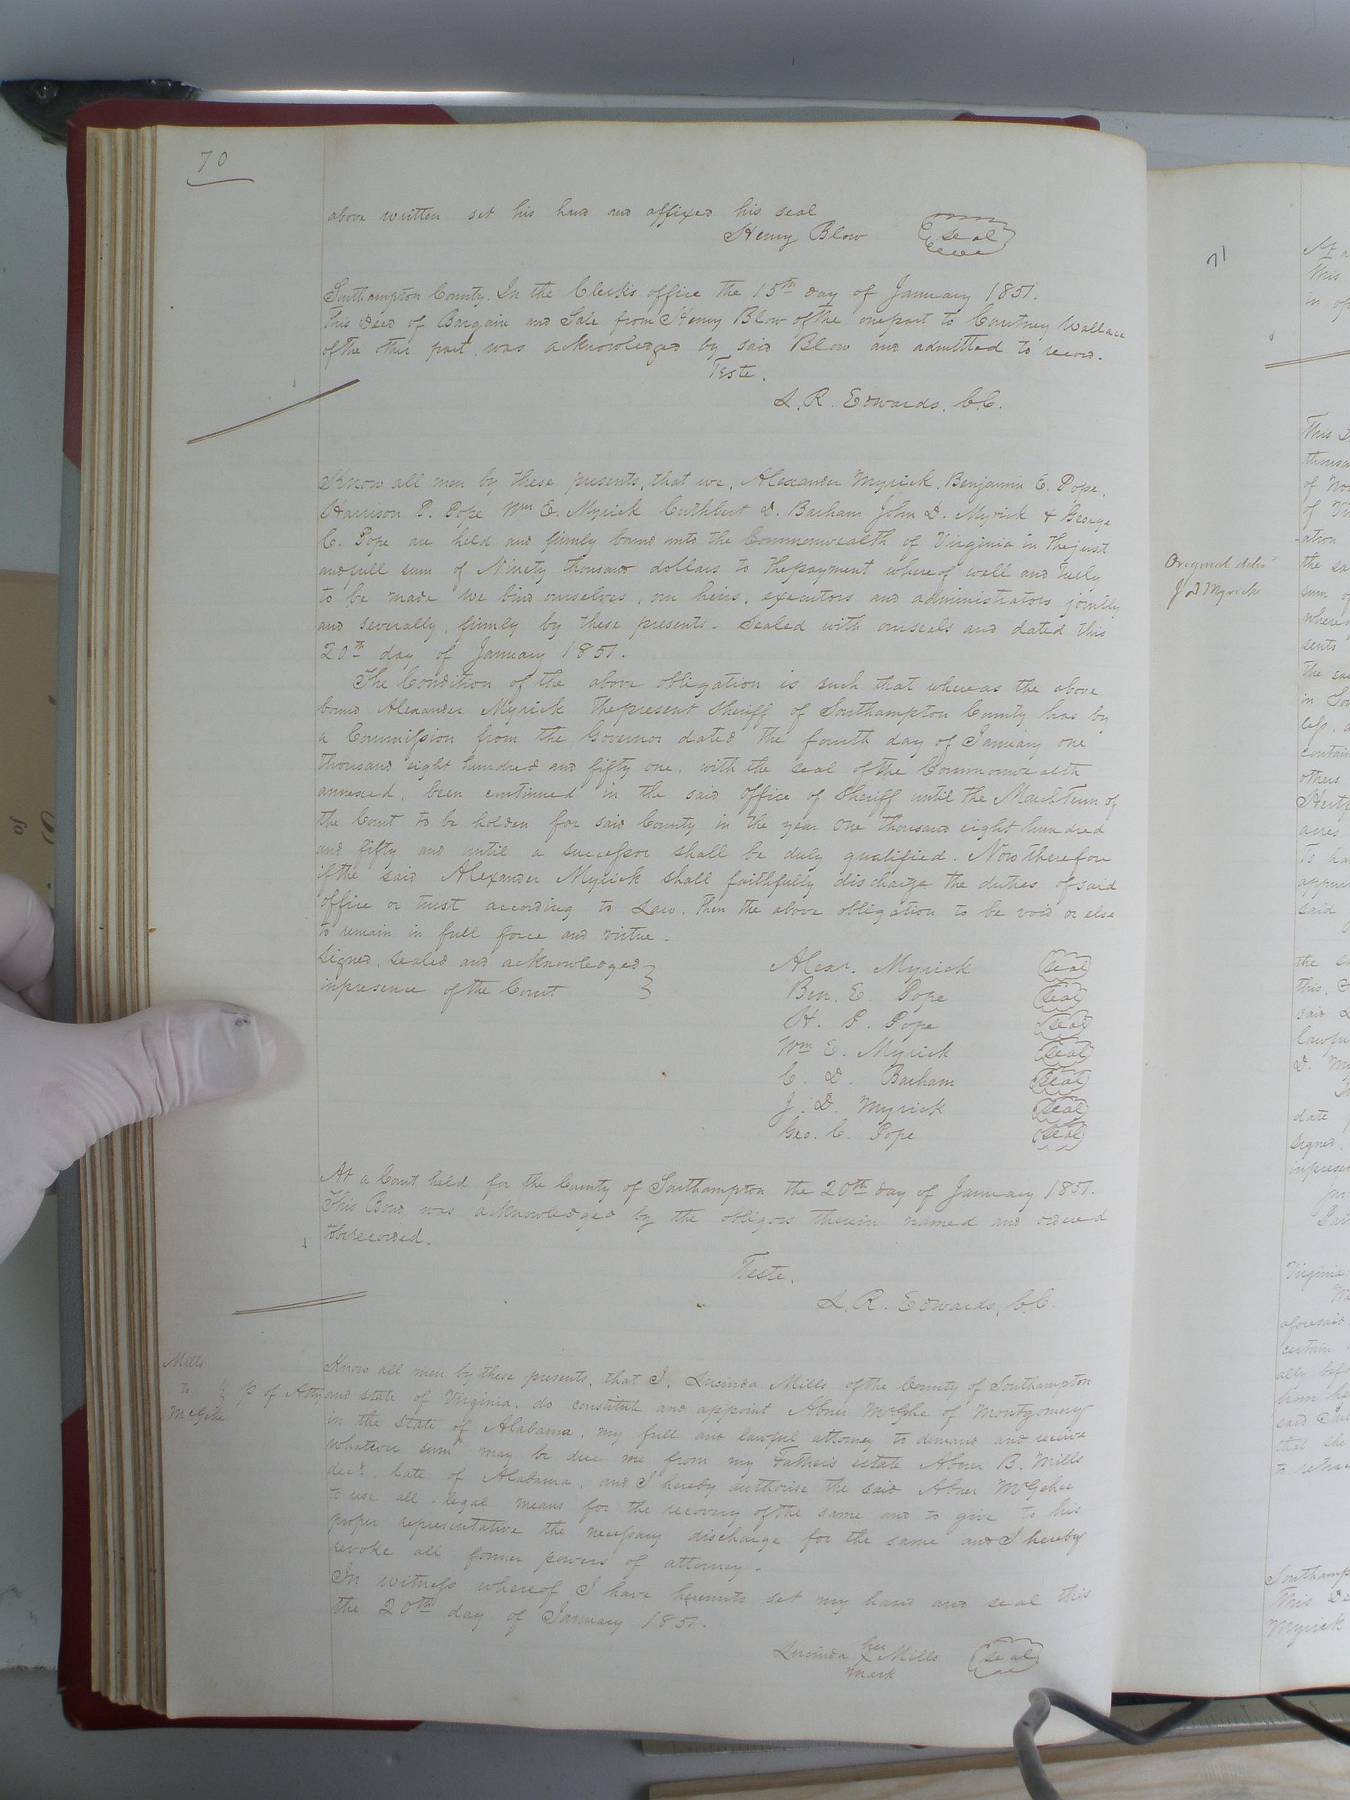 70
above written set his hand and affixed his seal
Henry Blow seal
Southampton County. In the Clerks office the 15th day of January 1851.
This Deed of Bargain and Sale from Henry Blow of the one part to Courtney Wallace
of the other part was acknowledged by said Blow and admitted to record.
Teste.
L. R. Edwards, C.C.
Know all men by these presents, that we, Alexander Myrick, Benjamin E. Pope,
Harrison P. Pope Wm E. Myrick Cuthbert D. Barham John D. Myrick & George
C. Pope are held and firmly bound unto the Commonwealth of Virginia in the just
and full sum of Ninety thousand dollars to the payment whereof well and truly
to be made We bind ourselves, our heirs, executors and administrators jointly
and severally, firmly by these presents. Sealed with our seals and dated this
20th day of January 1851.
The Condition of the above obligation is such that whereas the above
bound Alexander Myrick the present Sheriff of Southampton County has by
a Commission from the Governor dated the fourth day of January one
thousand eight hundred and fifty one, with the seal of the Commonwealth
annexed, been continued in the said office of Sheriff until the March Term of
the Court to be holden for said County in the year One thousand eight hundred
and fifty and until a successor shall be duly qualified. Now therefore
if the said Alexander Myrick shall faithfully discharge the duties of said
office or trust according to Law. Then the above obligation to be void or else
to remain in full force and virtue.
Signed, sealed and acknowledged
in presence of the Court
Alexr. Myrick seal
Ben. E. Pope seal
H. P. Pope seal
Wm E. Myrick seal
C. D. Barham seal
J. D. Myrick seal
Geo. C. Pope seal
At a Court held for the County of Southampton the 20th day of January 1851.
This Bond was acknowledged by the obligors therein named and ordered
to be recorded.
Teste.
L. R. Edwards, C.C.
Mills
to P of Atty
McGehe
Know all men by these presents, that I, Lucinda Mills of the County of Southampton
and state of Virginia, do constitute and appoint Abner McGhe of Montgomery
in the State of Alabama, my full and lawful attorney to demand and receive
whatever sum may be due me from my Fathers estate Abner B. Mills
decd. late of Alabama, and I hereby authorise the said Abner McGehee
to use all legal means for the recovery of the same and to give to his
proper representative the necessary discharge for the same and I hereby
revoke all former powers of attorney.
In witness whereof I have hereunto set my hand and seal this
the 20th day of January 1851.
Lucinda her X mark Mills seal
71
Original deliv
J D Myrick